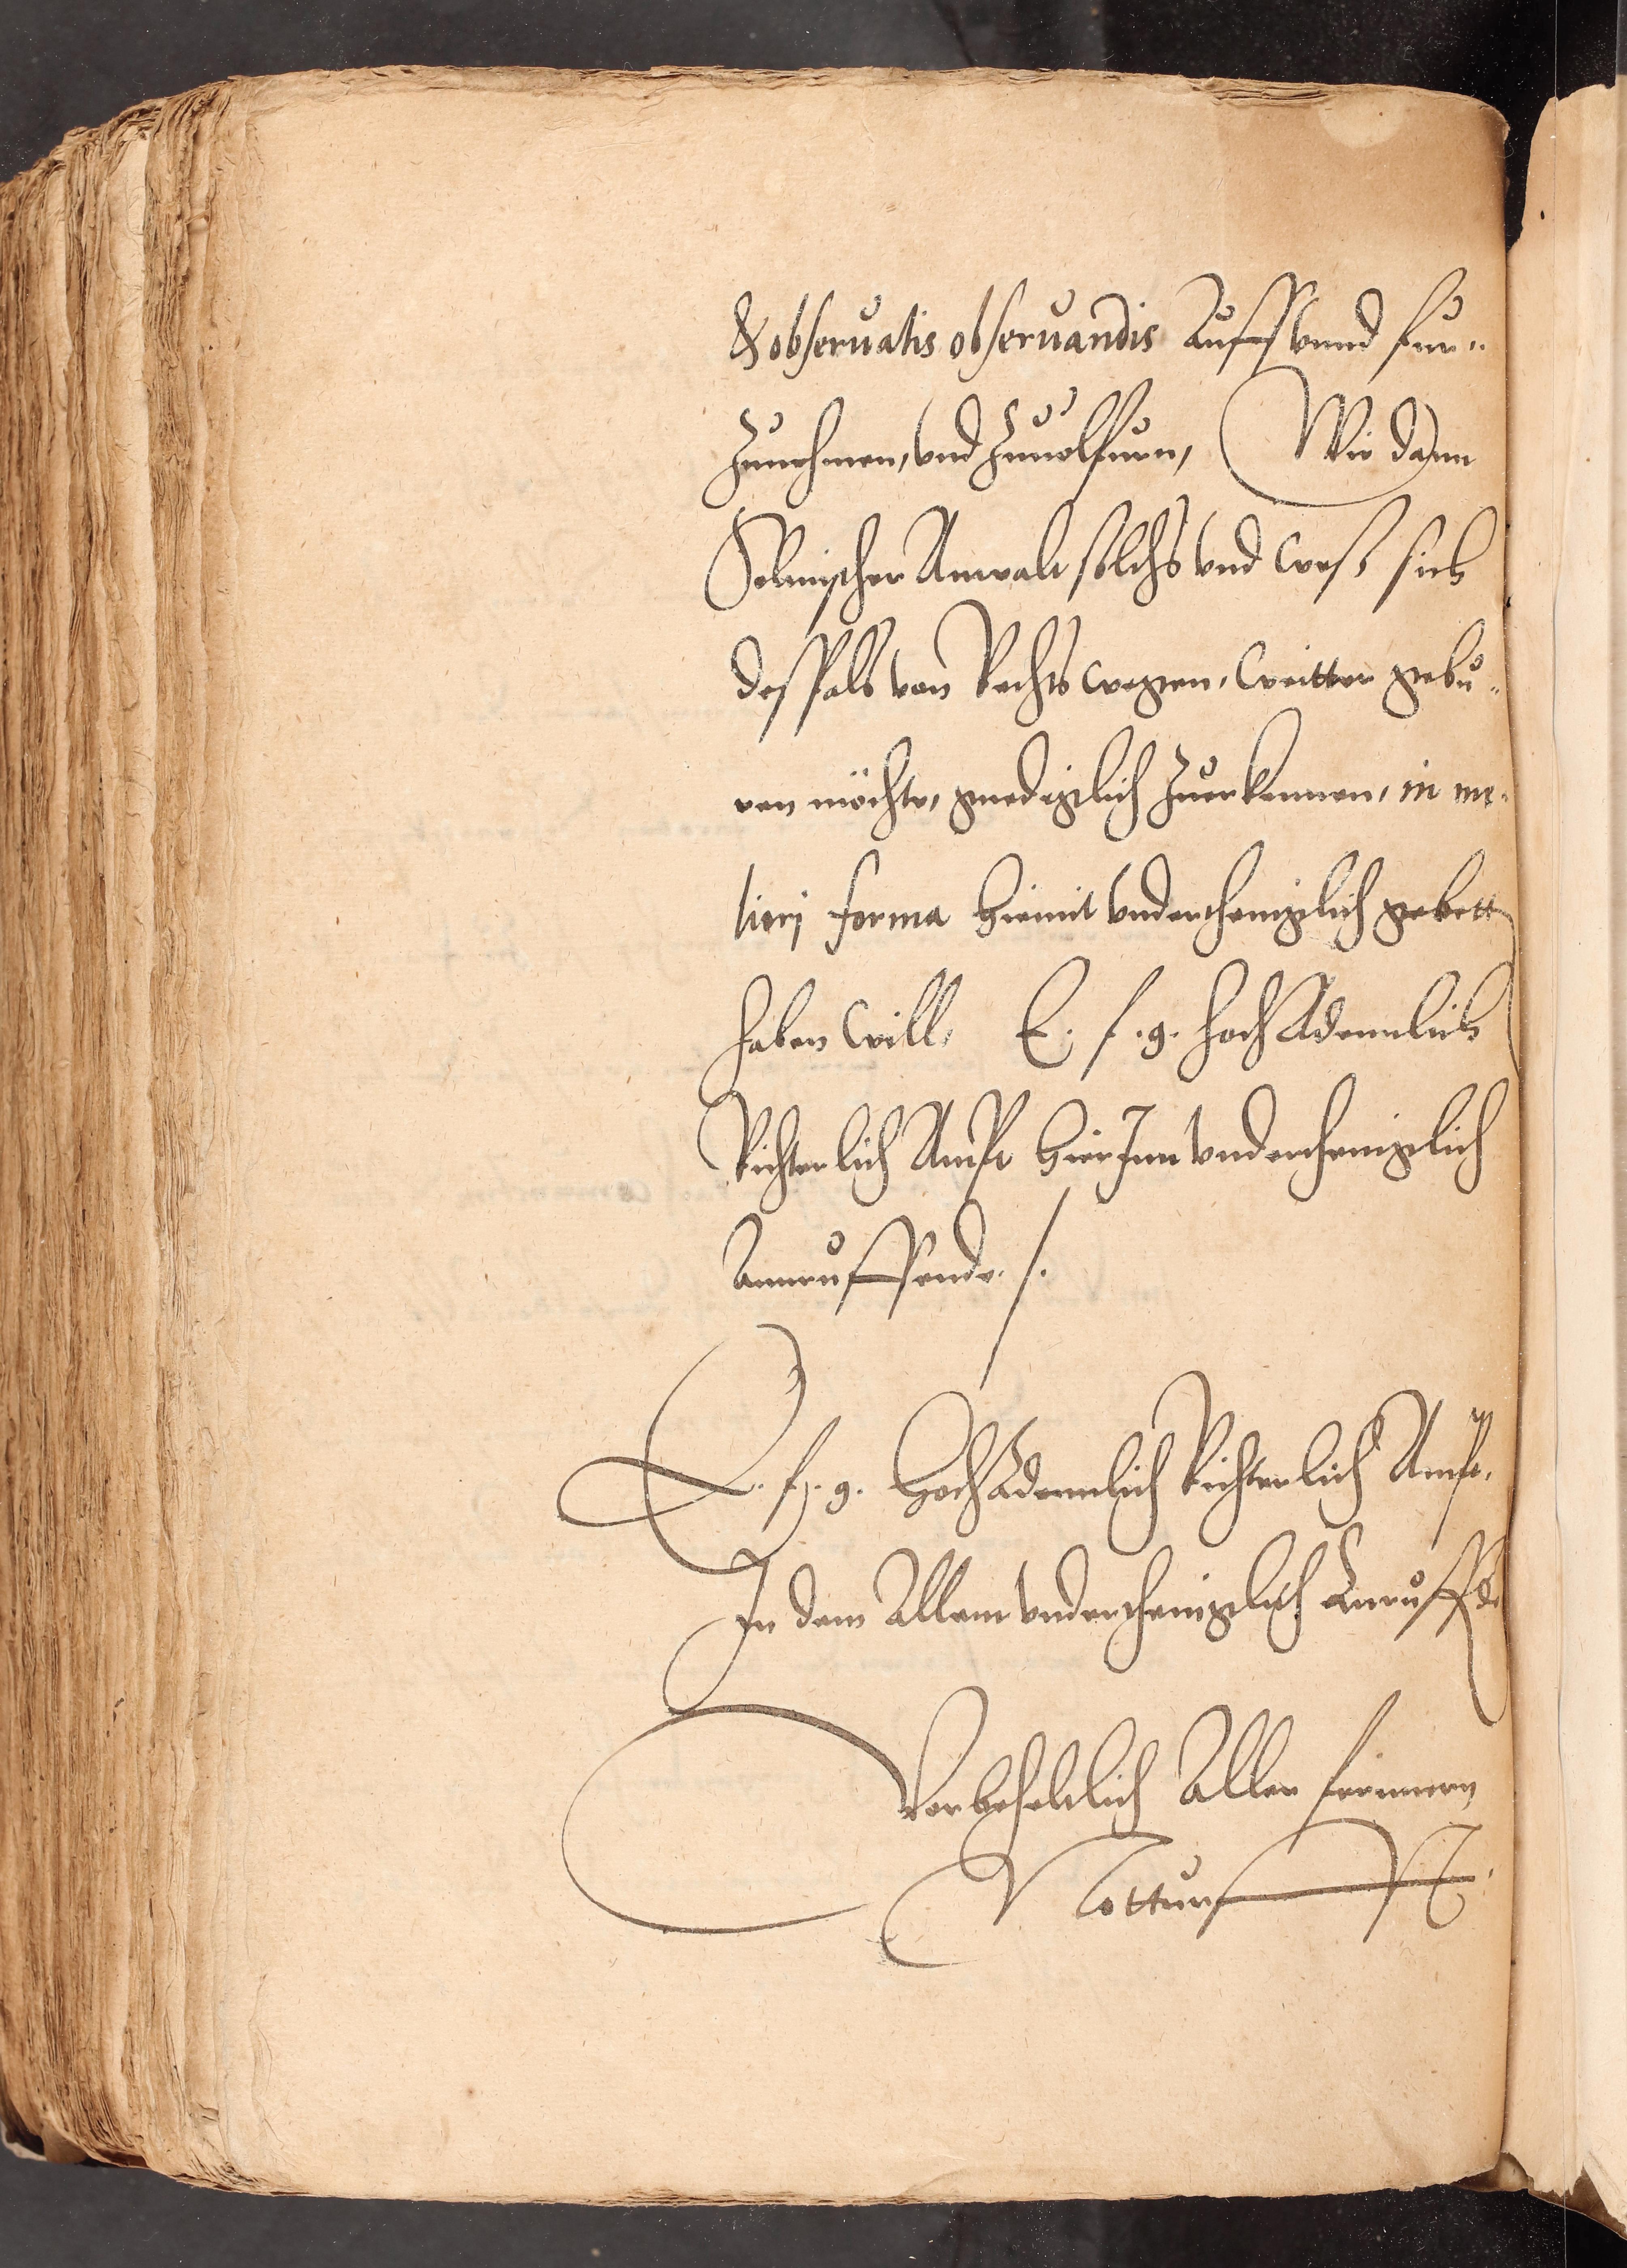 & obseruatis obseruandis Auff vnnd fur-
Zunehmen, vnd Zuuolfurn, Wie dann
Solmischer Anwalt solchs vnd weß sich
desfals von Rechts wegen, weitter gebu-
ren möchte, gnediglich Zuerkennen, in me-
liori forma hiemit vnderthenigklich gebett
haben will, E. f. g. hochAdennlich
Richterlich Ampt hierJnn vnderthenigklich
Annruffende ./.
E. f. g. HochAdennlich Richterlich Ampt,
In dem Allem vnderthenigklich Anruffde
Vorbeheltlich Aller fernnern
Notturfft.